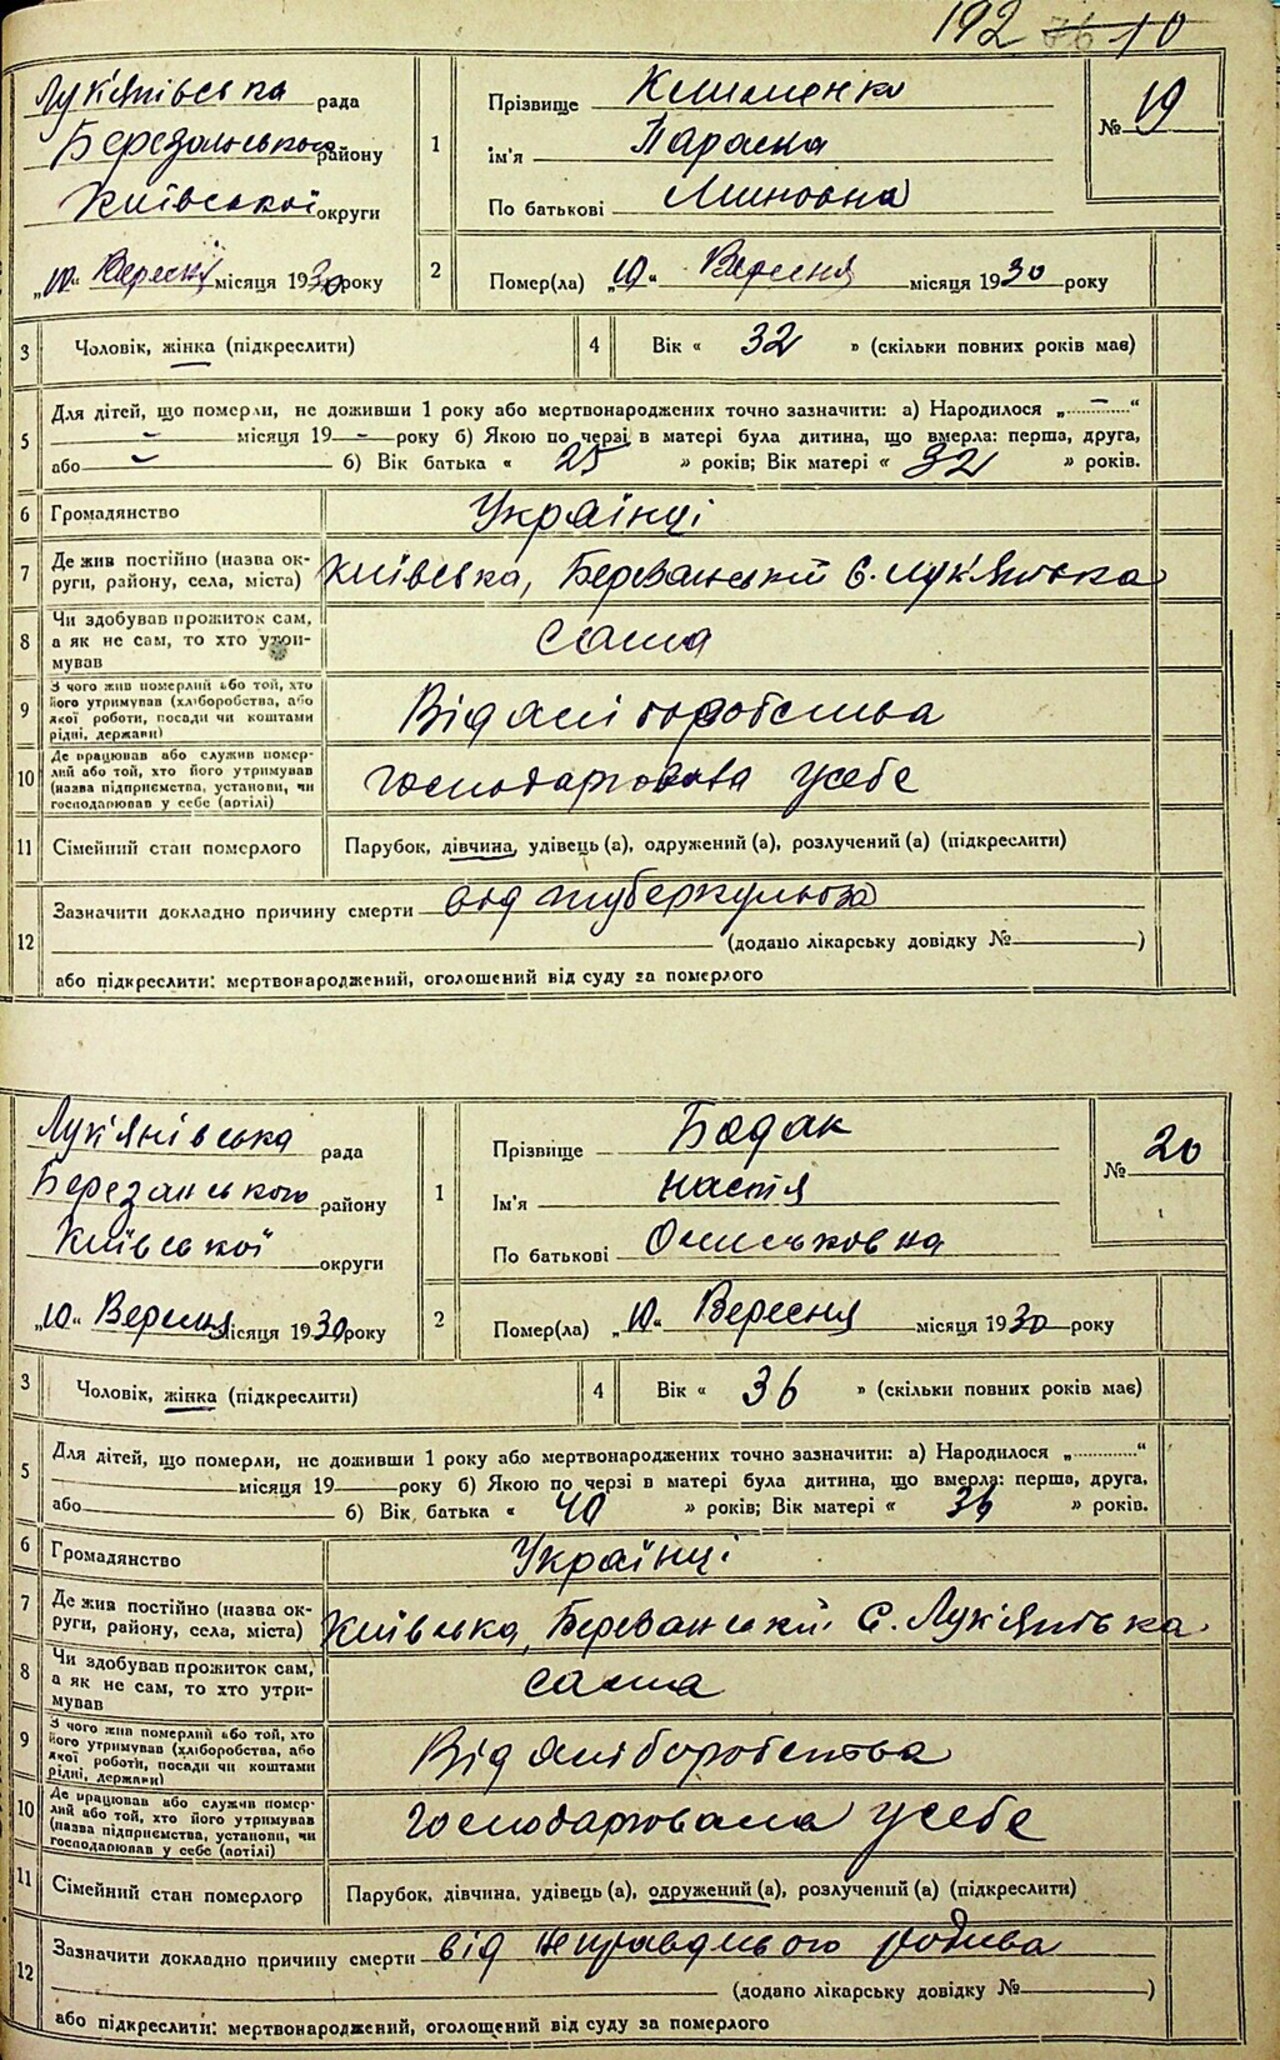 192 76 10
Лук'янівська рада
Березанського району
Київської округи
„10“ Вересня місяця 1930 року
1
Прізвище Клименко
ім'я Параска
По батькові Миновна
№ 19
2
Помер(ла) „10“ Вересня місяця 1930 року
3
Чоловік, жінка (підкреслити)
4
Вік « 32 » (скільки повних років має)
5
Для дітей, що померли, не доживши 1 року або мертвонароджених точно зазначити: а) Народилося „ - “
- місяця 19 - року б) Якою по черзі в матері була дитина, що вмерла: перша, друга,
або - б) Вік батька « 25 » років; Вік матері « 32 » років.
6
Громадянство
Українці
7
Де жив постійно (назва ок-
руги, району, села, міста)
Київська, Березанський с. Лук'янівка
8
Чи здобував прожиток сам,
а як не сам, то хто утри-
мував
Сама
9
З чого жив померлий або той, хто
його утримував (хліборобства, або
якої роботи, посади чи коштами
рідні, держави)
Від хліборобства
10
Де працював або служив помер-
лий або той, хто його утримував
(назва підприємства, установи, чи
господарював у себе (артілі)
господарювала усебе
11
Сімейний стан померлого
Парубок, дівчина, удівець (а), одружений (а), розлучений (а) (підкреслити)
12
Зазначити докладно причину смерти від туберкульоза
(додано лікарську довідку № )
або підкреслити: мертвонароджений, оголошений від суду за померлого
Лук'янівська рада
Березанського району
Київської округи
„10“ Вересня місяця 1930 року
1
Прізвище Бодак
Ім'я настя
По батькові
№ 20
2
Помер(ла) „10“ Вересня місяця 1930 року
3
Чоловік, жінка (підкреслити)
4
Вік « 36 » (скільки повних років має)
5
Для дітей, що померли, не доживши 1 року або мертвонароджених точно зазначити: а) Народилося „ “
місяця 19 року б) Якою по черзі в матері була дитина, що вмерла: перша, друга,
або б) Вік батька « 40 » років; Вік матері « 36 » років.
6
Громадянство
Українці
7
Де жив постійно (назва ок-
руги, району, села, міста)
Київська, Березанський С. Лук'янівка
8
Чи здобував прожиток сам,
а як не сам, то хто утри-
мував
сама
9
З чого жив померлий або той, хто
його утримував (хліборобства, або
якої роботи, посади чи коштами
рідні, держави)
Від хліборобства
10
Де працював або служив помер-
лий або той, хто його утримував
(назва підприємства, установи, чи
господарював у себе (артілі)
господарювала усебе
11
Сімейний стан померлого
Парубок, дівчина, удівець (а), одружений (а), розлучений (а) (підкреслити)
12
Зазначити докладно причину смерти від неправдивого родива
(додано лікарську довідку № )
або підкреслити: мертвонароджений, оголошений від суду за померлого